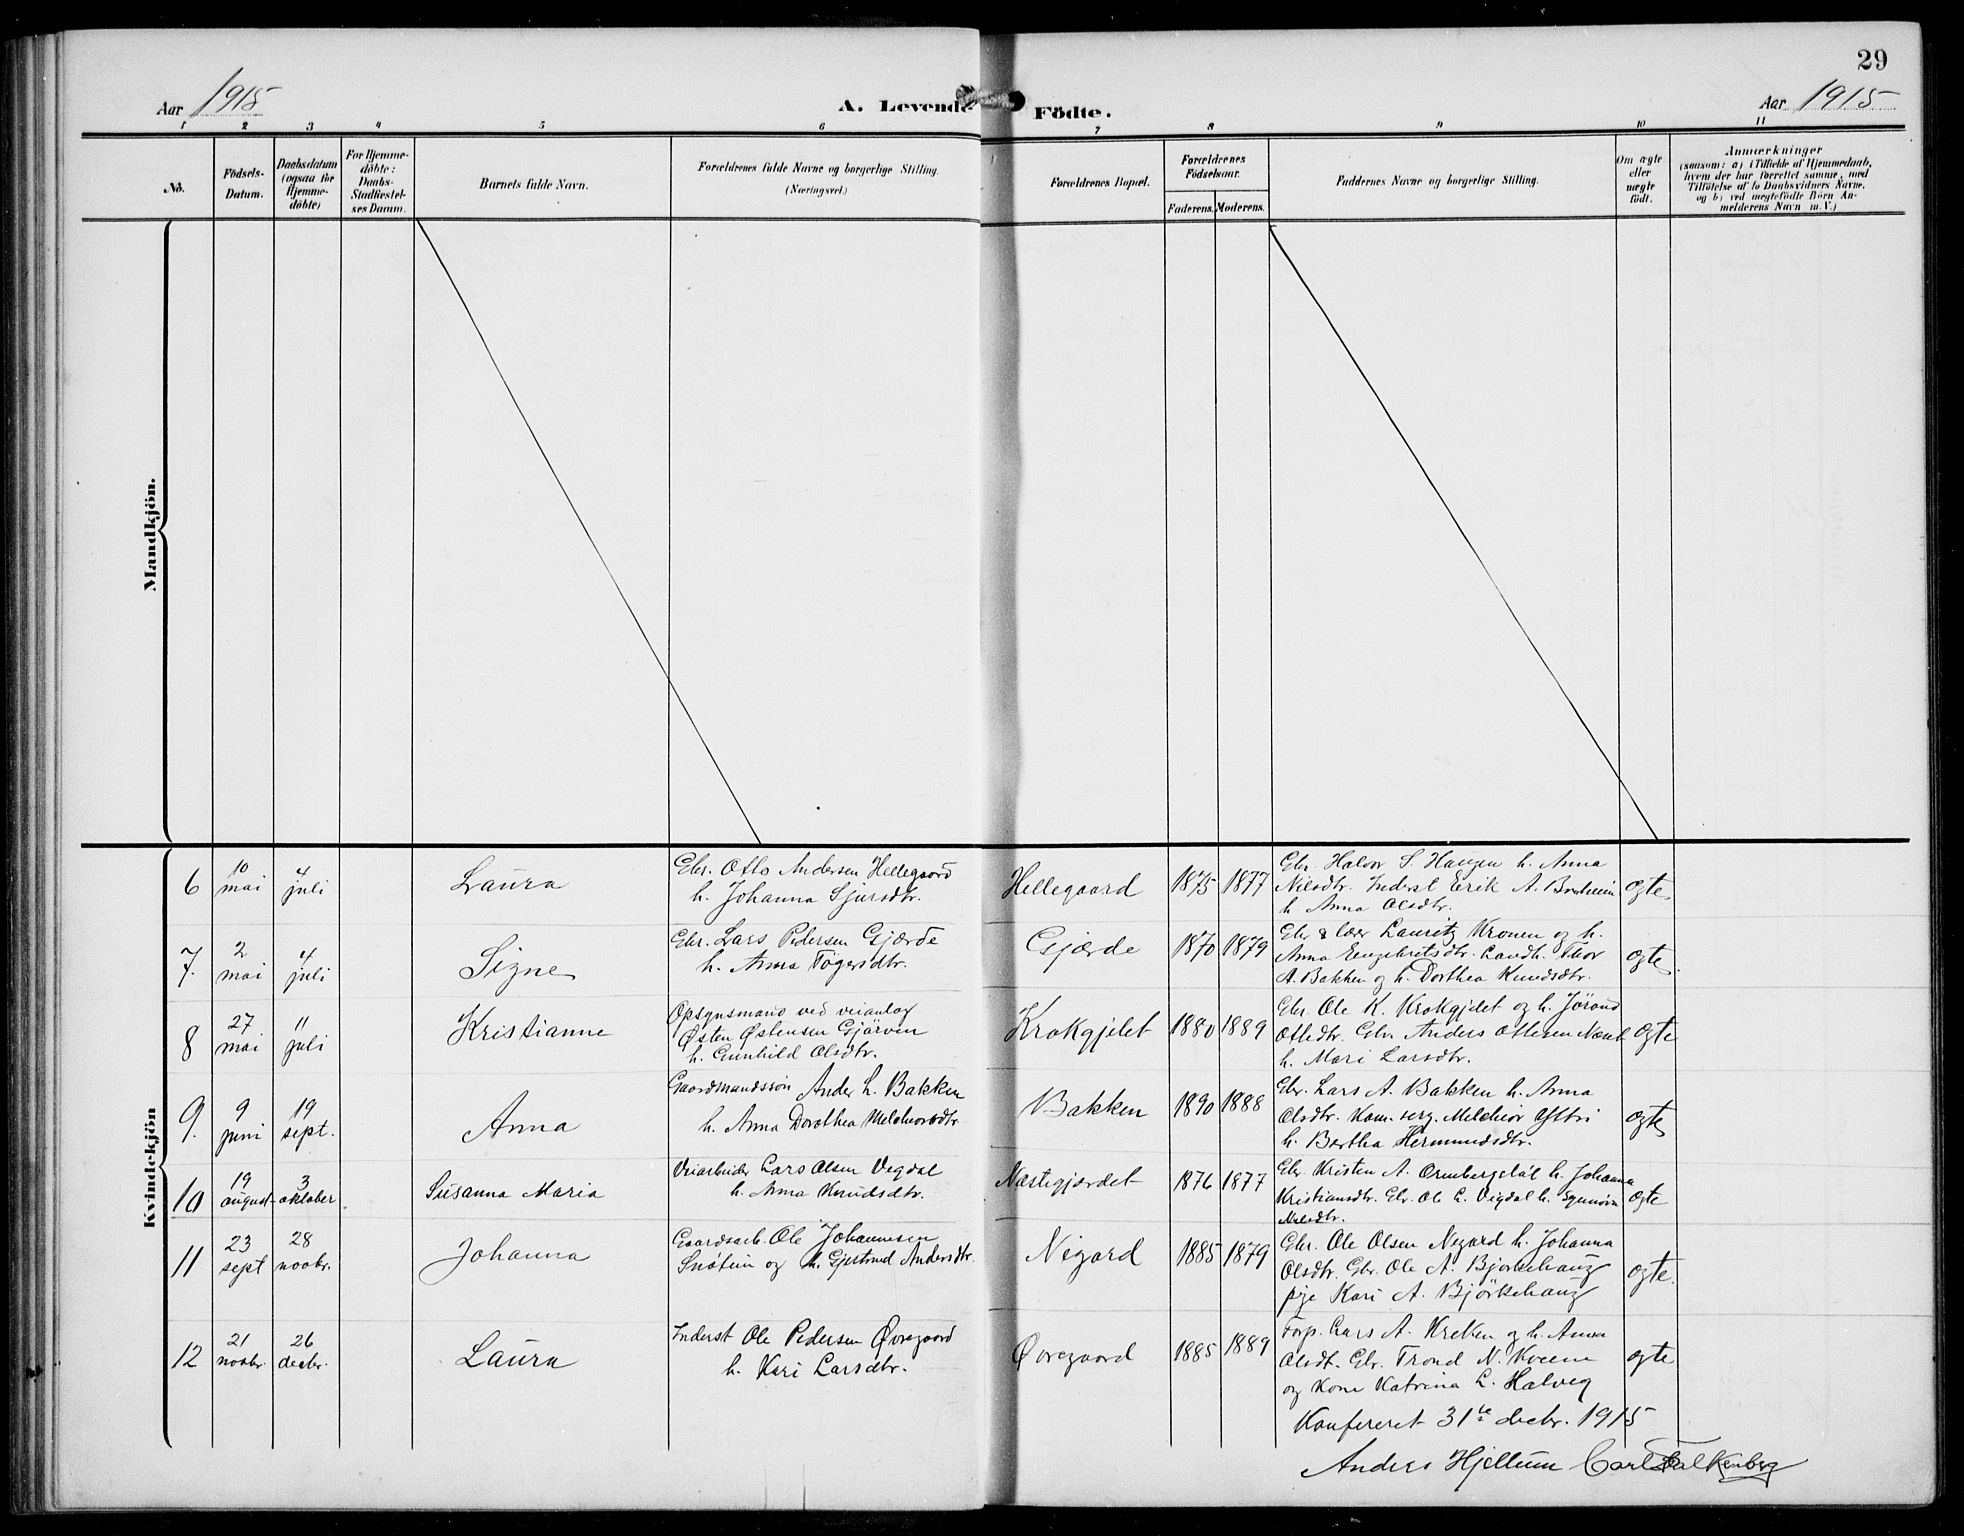 29
Aar 1915
A. Levende Födte.
Aar 1915
1 2 3 4 5 6 7 8 9 10 11
No.
Födsels-
Datum.
Daabsdatum
(ogsaa for
Hjemme-
döbte)
For Hjemme-
döbte:
Daabs-
Stadfæstel-
ses Datum.
Barnets fulde Navn.
Forældrenes fulde Navne og borgerlige Stilling.
(Næringsvei.)
Forældrenes Bopæl.
Forældrenes
Födselsaar.
Faderens. Moderens.
Faddernes Navne og borgerlige Stilling.
Om ægte
eller
uægte
födt.
Anmærkninger
(saasom: a) i Tilfælde af Hjemmedaab,
hvem der har forrettet samme, med
Tilföielse af to Daabsvidners Navne,
og b) ved uægtefödte Börn An-
melderens Navn m.V.)
Mandkjön.
Kvindekjön
6
10
mai
4
juli
Laura
Gbr. Otto Andersen Hellegaard
h. Johanna Sjursdtr.
Hellegaard
1875 1877
Gbr. Halvor S. Haugen h. Anna
Nilsdtr. Inderst Erik A.
h Anna Olsdtr.
ogte
7.
2
mai
4
juli
Signe
Gbr. Lars Pedersen Gjærde
h. Anna Tøgersdtr.
Gjærde
1870 1879
Gbr & lær Lauritz Kronen og h.
Anna Engebretsdtr. Landh. Thor
A. Bakken og h. Dorthea Knudsdtr.
ogte
8
27
mai
11
juli
Kristianne
Opsynsmand ved veianlæg
Østen Østensen Gjärven
h. Gunhild Olsdtr.
Krokgjelet
1880 1889
Gbr Ole K. Krokgjelet og h. Jørand
Ottedtr. Gbr. Anders Ottesen
h. Mari Larsdtr.
ogte
9.
9
juni
19
sept.
Anna
Gaardmandssön Ander L. Bakken
h. Anna Dorothea Melchiorsdtr.
Bakken
1890 1888
Gbr. Lars A. Bakken h. Anna
Olsdtr. Kom. serg. Melchior Øftri
h. Bertha Hermundsdtr.
ogte
10
19
august
3
oktober
Susanna Maria
Veiarbeider Lars Olsen Vegdal
h. Anna Knudsdtr.
Næstegjærdet
1876 1877
Gbr. Kristen A. h. Johanna
Kristiansdtr. Gbr. Ole L. Vegdal h. Synnøva
Nilsdtr.
ogte
11
23
sept
28
novbr.
Johanna
Gaardsarb. Ole Johannesen
Snøtun og h. Gjertrud Andersdtr.
Negard
1885 1879
Gbr. Ole Olsen Negard h. Johanna
Olsdtr. Gbr. Ole A. Bjørkehaug
pige Kari A. Björkehaug
ogte.
12
21
novbr.
26
decbr.
Laura
Inderst Ole Pedersen Øvregaard
h. Kari Larsdtr.
Øvregaard
1885 1889
Forp. Lars A. Kreken og h. Anna
Olsdt. Gbr. Trond N. Kveene
og Kone Katrina L. Halveg
ogte
Konfereret 31te decbr. 1915
Anders Hjellum Carl Falkenberg